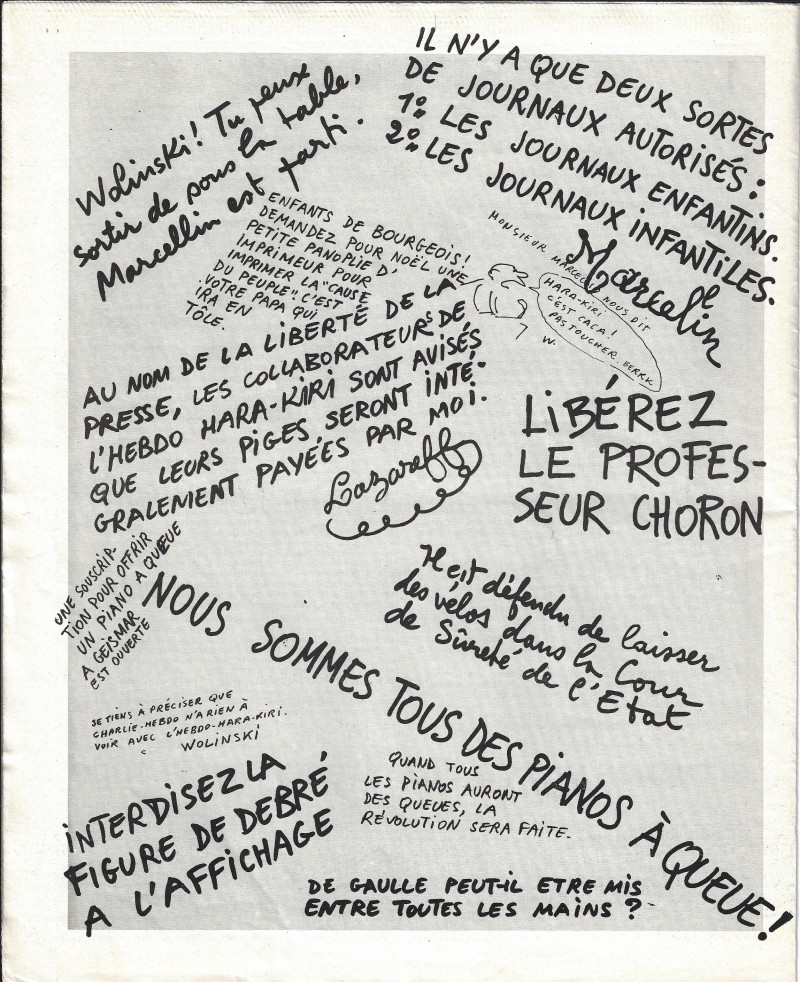 Wolinski! Tu peux
sortir de sous la table,
Marcellin est parti.
IL N'Y A QUE DEUX SORTES
DE JOURNAUX AUTORISÉS :
1º LES JOURNAUX ENFANTINS.
2º LES JOURNAUX INFANTILES.
Marcelin
ENFANTS DE BOURGEOIS!
DEMANDEZ POUR NOËL UNE
PETITE PANOPLIE D'
IMPRIMEUR POUR
IMPRIMER LA "CAUSE
DU PEUPLE". C'EST
VOTRE PAPA QUI
IRA EN
TÔLE.
MONSIEUR MARCELIN NOUS DIT
HARA-KIRI
C'EST CACA!
PAS TOUCHER. BERRK
W.
AU NOM DE LA LIBERTÉ DE LA
PRESSE, LES COLLABORATEURS DE
L'HEBDO HARA-KIRI SONT AVISÉS
QUE LEURS PIGES SERONT INTÉ-
GRALEMENT PAYÉES PAR MOI.
Lazareff
LIBÉREZ
LE PROFES-
SEUR CHORON
UNE SOUSCRIP-
TION POUR OFFRIR
UN PIANO A QUEUE
A GEISMAR
EST OUVERTE
Il est défendu de laisser
des vélos dans la Cour
de Sûreté de l'Etat
NOUS SOMMES TOUS DES PIANOS À QUEUE!
JE TIENS À PRÉCISER QUE
CHARLIE-HEBDO N'A RIEN À
VOIR AVEC L'HEBDO-HARA-KIRI.
WOLINSKI
QUAND TOUS
LES PIANOS AURONT
DES QUEUES, LA
RÉVOLUTION SERA FAITE.
INTERDISEZ LA
FIGURE DE DEBRÉ
A L'AFFICHAGE
DE GAULLE PEUT-IL ETRE MIS
ENTRE TOUTES LES MAINS ?